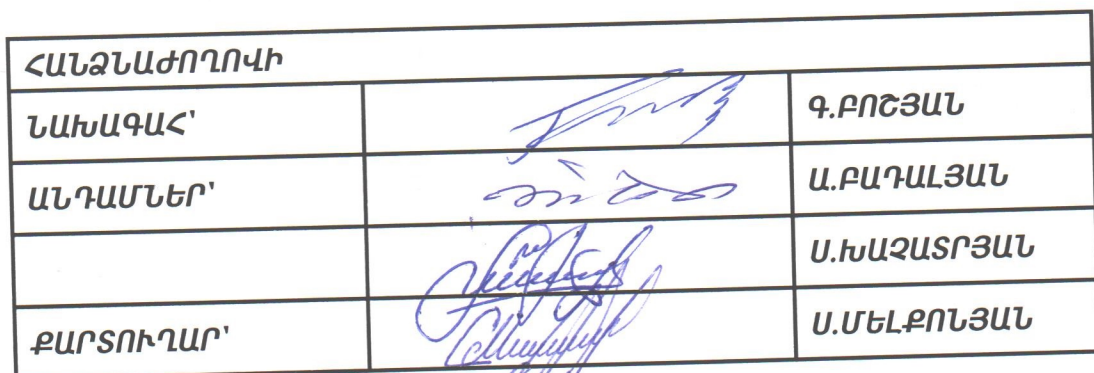 ՀԱՆՁՆԱԺՈՂՈՎԻ
ՆԱԽԱԳԱՀ՝ Գ.ԲՈՇՅԱՆ
ԱՆԴԱՄՆԵՐ՝ Ա.ԲԱԴԱԼՅԱՆ
Ս.ԽԱՉԱՏՐՅԱՆ
ՔԱՐՏՈՒՂԱՐ՝ Ս.ՄԵԼՔՈՆՅԱՆ